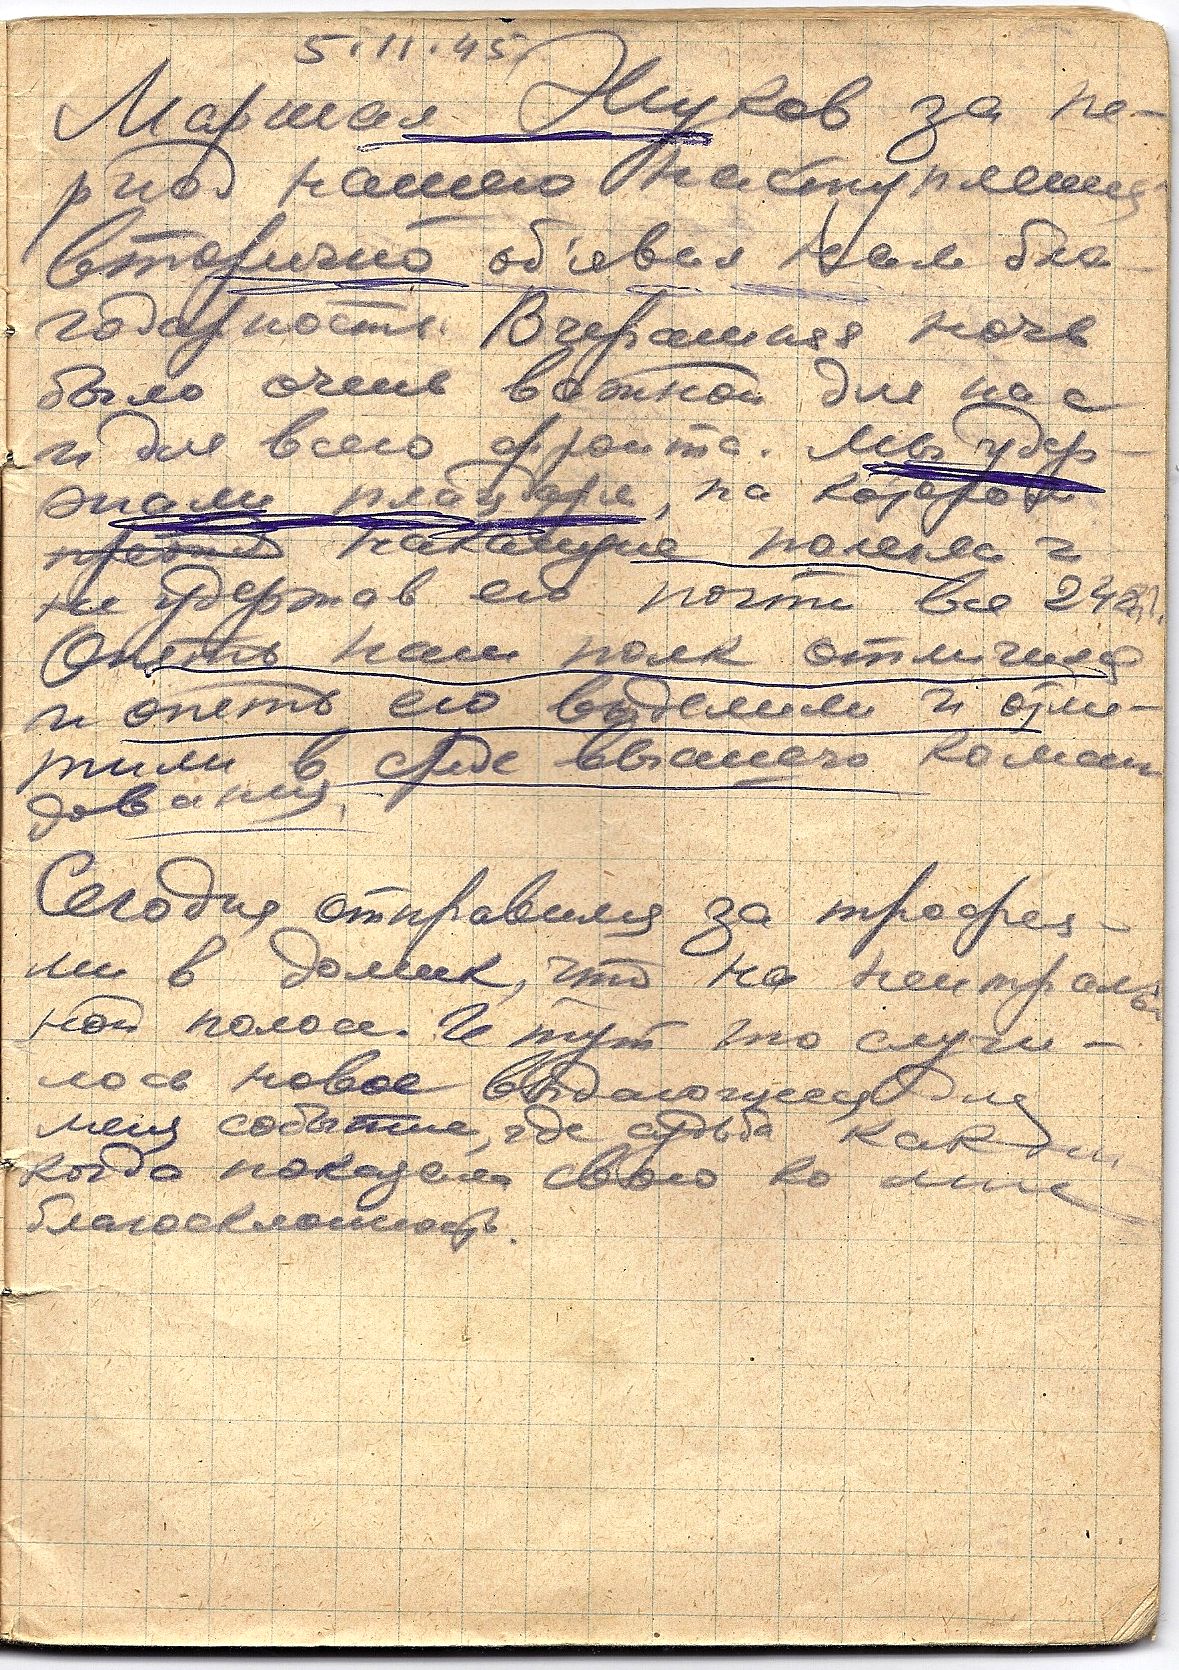 5.II.45.
Маршал Жуков за пе-
риод нашего наступления
вторично об'явил нам бла-
годарность. Вчерашняя ночь
было очень важной для нас
и для всего фронта. Мы удер-
жали плацдарм, на котором
накануне полегли и
не удержав его почти все 248
Опять наш полк отличился
и опять его выделили и отме-
тили в среде высшего коман
дования.
Сегодня отправился за трофея-
ми в домик, что на нейтраль
ной полосе. И тут то случи-
лось новое выдающееся для
меня событие, где судьба как ни
когда показала свою ко мне
благосклонность.